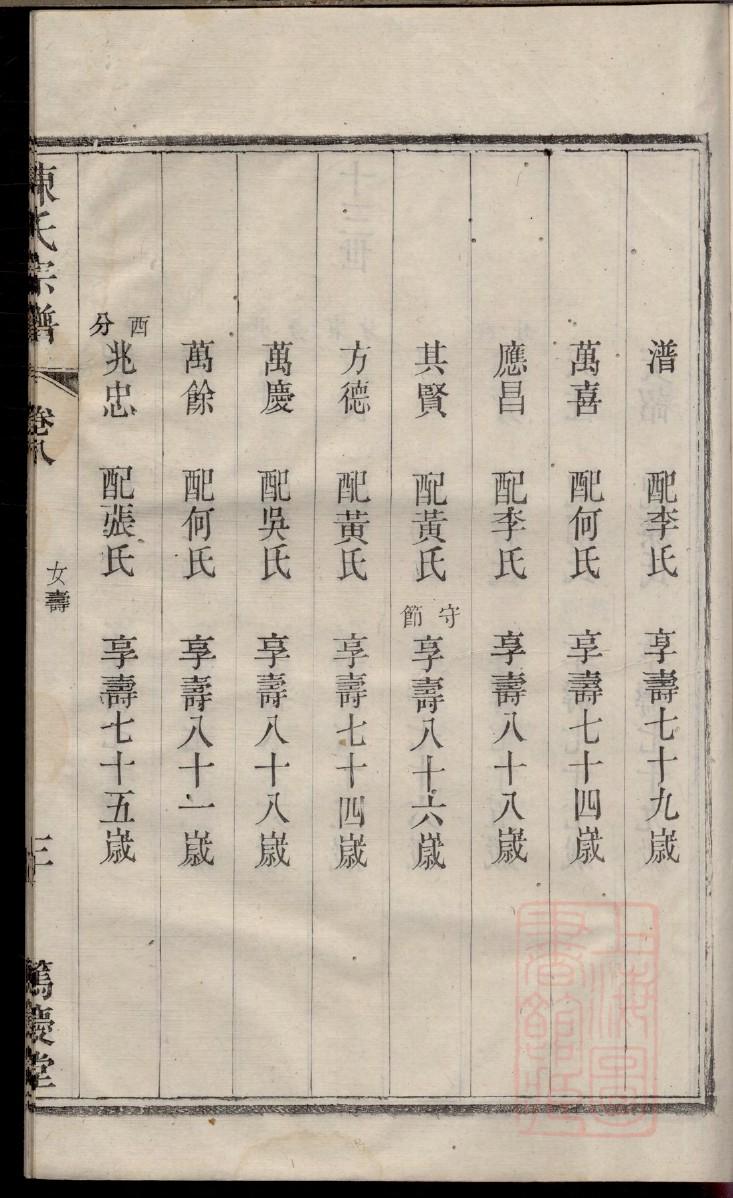 潽　配李氏　享壽七十九歲
萬喜　配何氏　享壽七十四歲
應昌　配李氏　享壽八十八歲
其賢　配黃氏　守節　享壽八十六歲
方德　配黃氏　享壽七十四歲
萬慶　配吳氏　享壽八十八歲
萬餘　配何氏　享壽八十一歲
西分　兆忠　配張氏　享壽七十五歲
陳氏宗譜　卷八　女壽　三　篤慶堂
上海圖書館藏